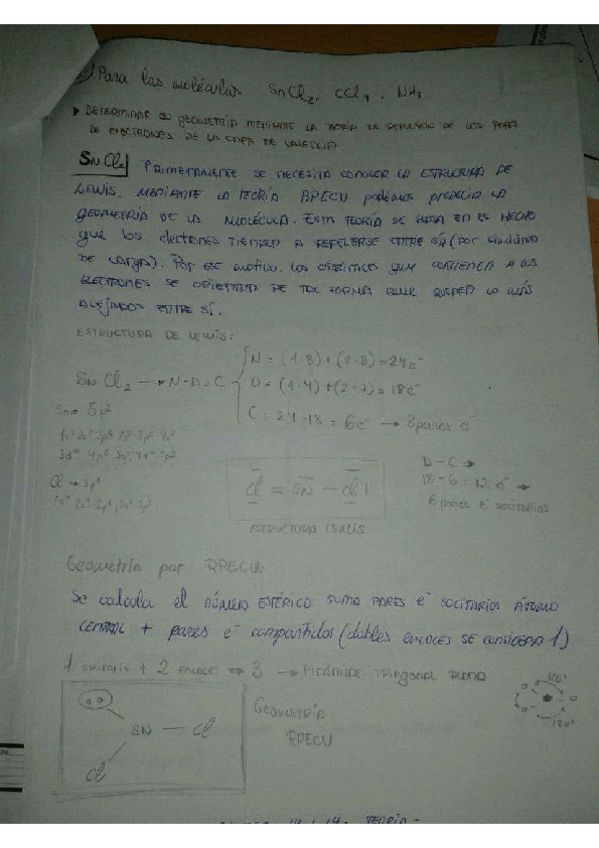 Para las moléculas SnCl2, CCl4, NH3
▸ DETERMINAR SU GEOMETRÍA MEDIANTE LA TEORÍA DE REPULSIÓN DE LOS PARES
DE ELECTRONES DE LA CAPA DE VALENCIA
SnCl2 PRIMERAMENTE SE NECESITA CONOCER LA ESTRUCTURA DE
LEWIS. MEDIANTE LA TEORÍA RPECV podemos predecir LA
GEOMETRÍA DE LA MOLÉCULA. Esta TEORÍA SE BASA EN EL HECHO
que los electrones TIENDEN A REPELERSE ENTRE SÍ (por
DE CARGA). Por ESE motivo, LOS ORBITALES que CONTIENEN A LOS
ELECTRONES SE ORIENTAN DE TAL FORMA QUE QUEDEN LO MÁS
ALEJADOS ENTRE SÍ.
ESTRUCTURA DE LEWIS:
N = (1·8)+(2·8)=24e-
SnCl2 → N-D=C
D = (1·4)+(2·7)=18e-
C = 24-18 = 6e- → 3 pares e-
Sn → 5p2
Cl → 3p5
D-C →
18-6 = 12 e- →
6 pares e- solitarios
Cl = SN - Cl |
ESTRUCTURA LEWIS
Geometría por RPECV:
Se calcula el NÚMERO ESTÉRICO: SUMA PARES e- SOLITARIOS ÁTOMO
CENTRAL + pares e- compartidos (dobles enlaces SE CONSIDERA 1)
1 solitario + 2 ENLACES ⇒ 3 → PIRÁMIDE TRIAGONAL PLANA
SN - Cl
Cl
GEOMETRÍA
RPECV
180°
TEORÍA